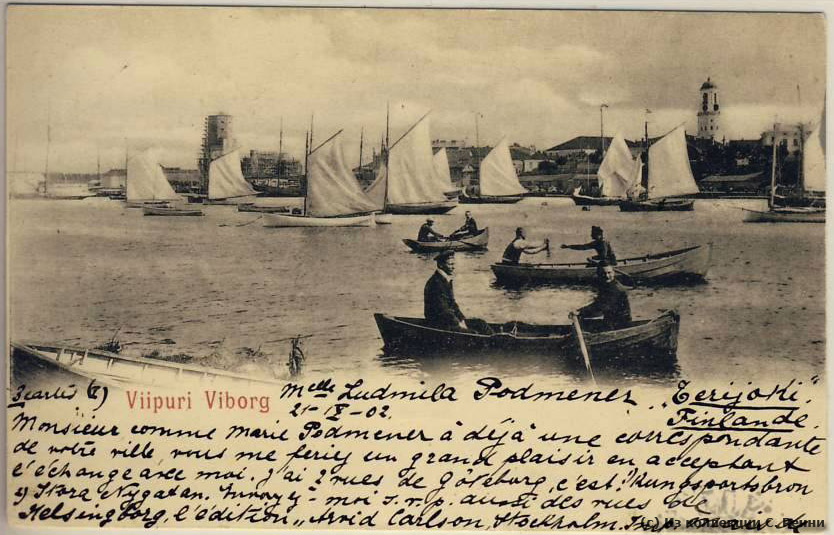 3 cartes Viipuri Viborg Melle Ludmila Podmener „Terijoki“.
21-IX-02. Finlande.
Monsieur comme Marie Podmener à déjà une correspondante
de votre ville, vous me feriez un grand plaisir en acceptant
l'échange avec moi. J'ai 2 vues de Göteborg, c'est: 1) Kungsportsbron
2) Stora Nygatan. Envoyez-moi s.v.p. aussi des vues de
Helsingborg, l'édition „Arvid Carlson, Stockholm.
(c) Из коллекции С. Ренни